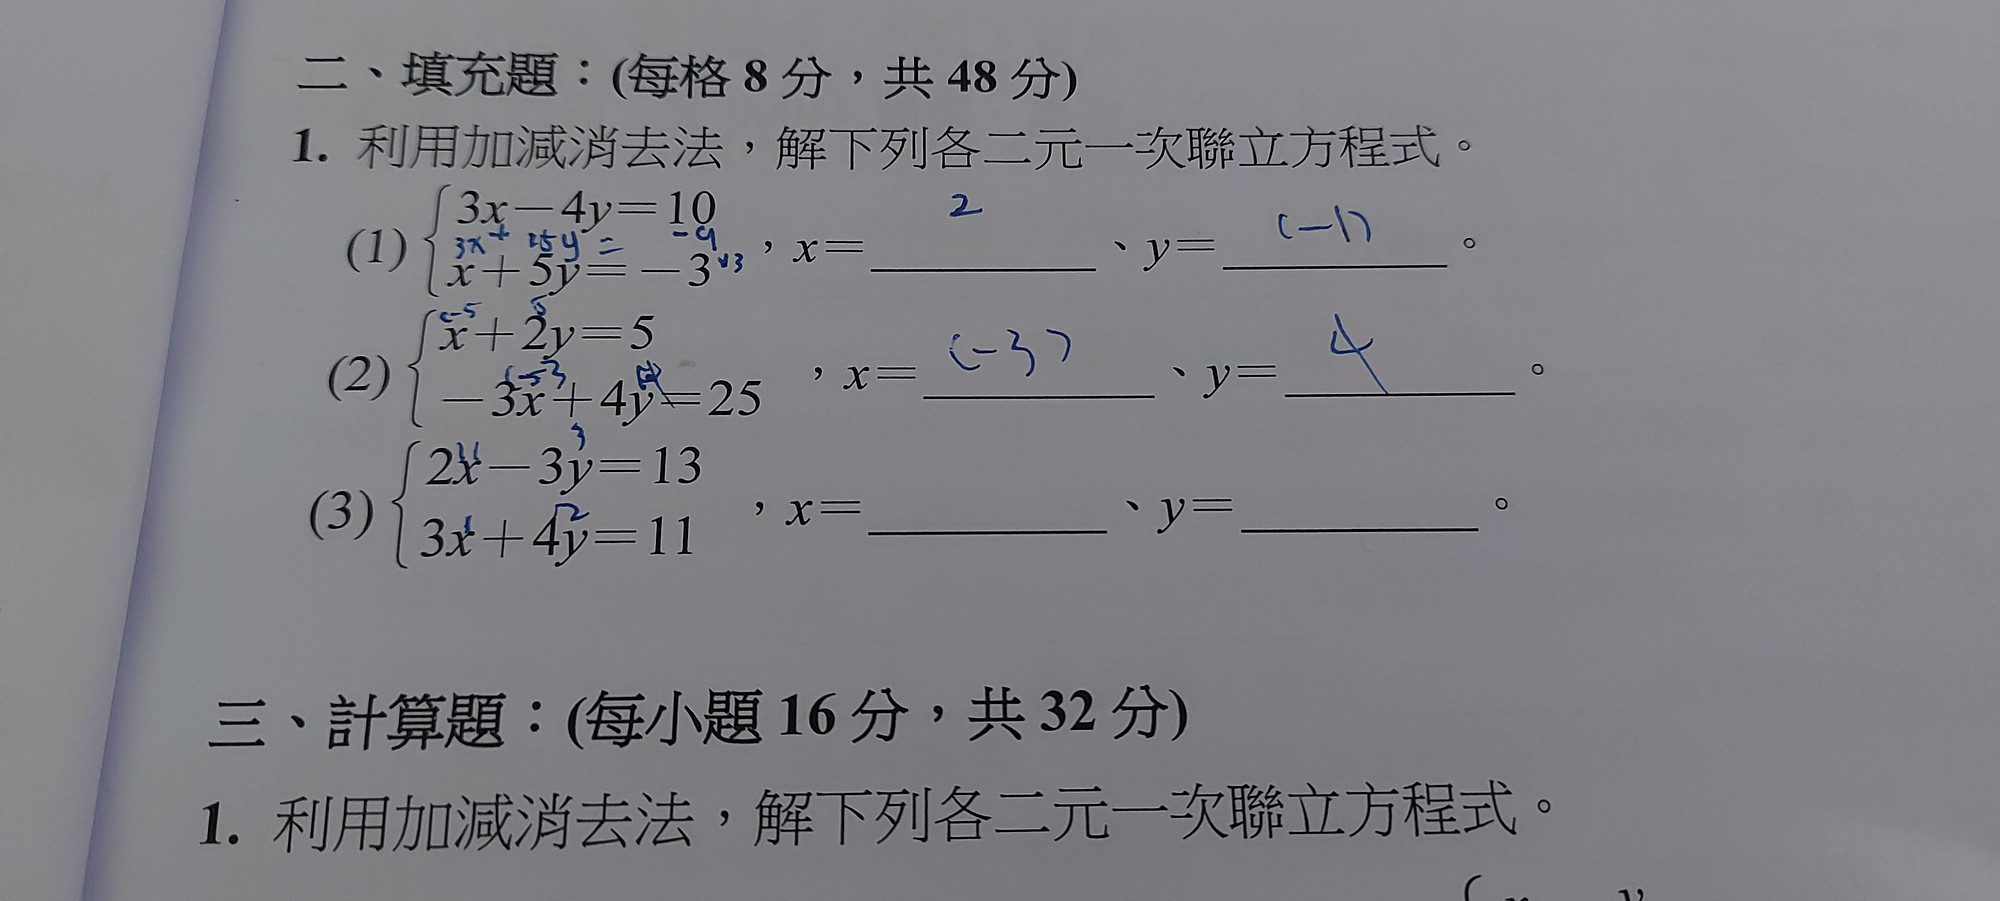 二、填充題：(每格 8 分，共 48 分)
1. 利用加減消去法，解下列各二元一次聯立方程式。
3x－4y＝10
2
(－1)
3x＋15y＝－9
(1)，x＝、y＝。
x＋5y＝－3 ×3
x＋2y＝5
(－3)
4
(2)，x＝、y＝。
－3x＋4y＝25
3
2x－3y＝13
(3)，x＝、y＝。
3x＋4y＝11
三、計算題：(每小題 16 分，共 32 分)
1. 利用加減消去法，解下列各二元一次聯立方程式。